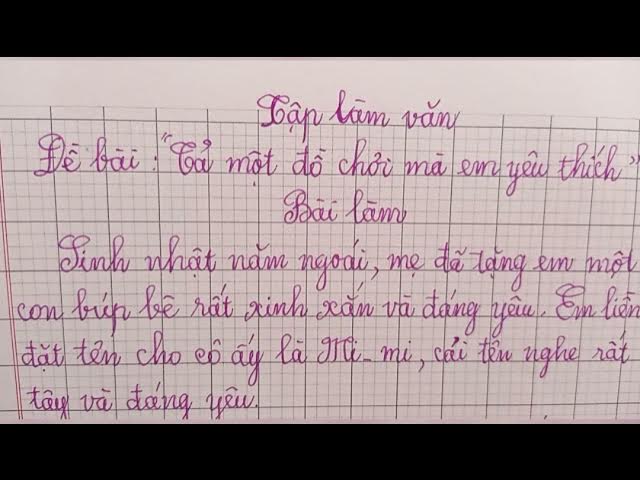 Tập làm văn
Đề bài: "Tả một đồ chơi mà em yêu thích"
Bài làm
Sinh nhật năm ngoái, mẹ đã tặng em một
con búp bê rất xinh xắn và đáng yêu. Em liền
đặt tên cho cô ấy là Mi-mi, cái tên nghe rất
tây và đáng yêu.